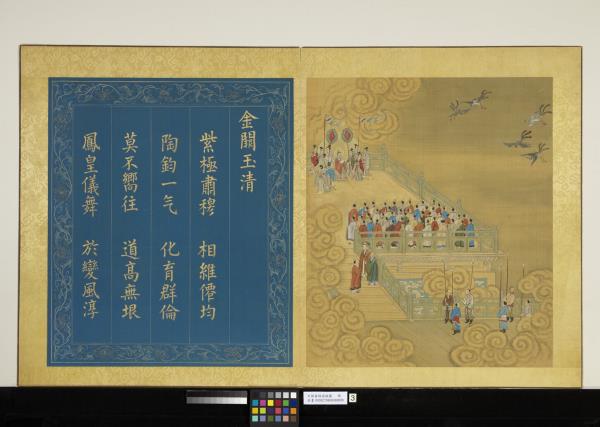 金闕玉清
紫極肅穆 相維僊均
陶鈞一气 化育群倫
莫不嚮往 道高無垠
鳳皇儀舞 於變風淳
3